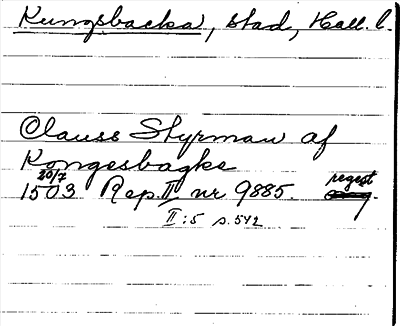 Kungsbacka, stad, Hall. l.
Clauss Styrman af
Kongesbagke
20/7
1503 Rep. II nr 9885. regest
II:5 s. 542